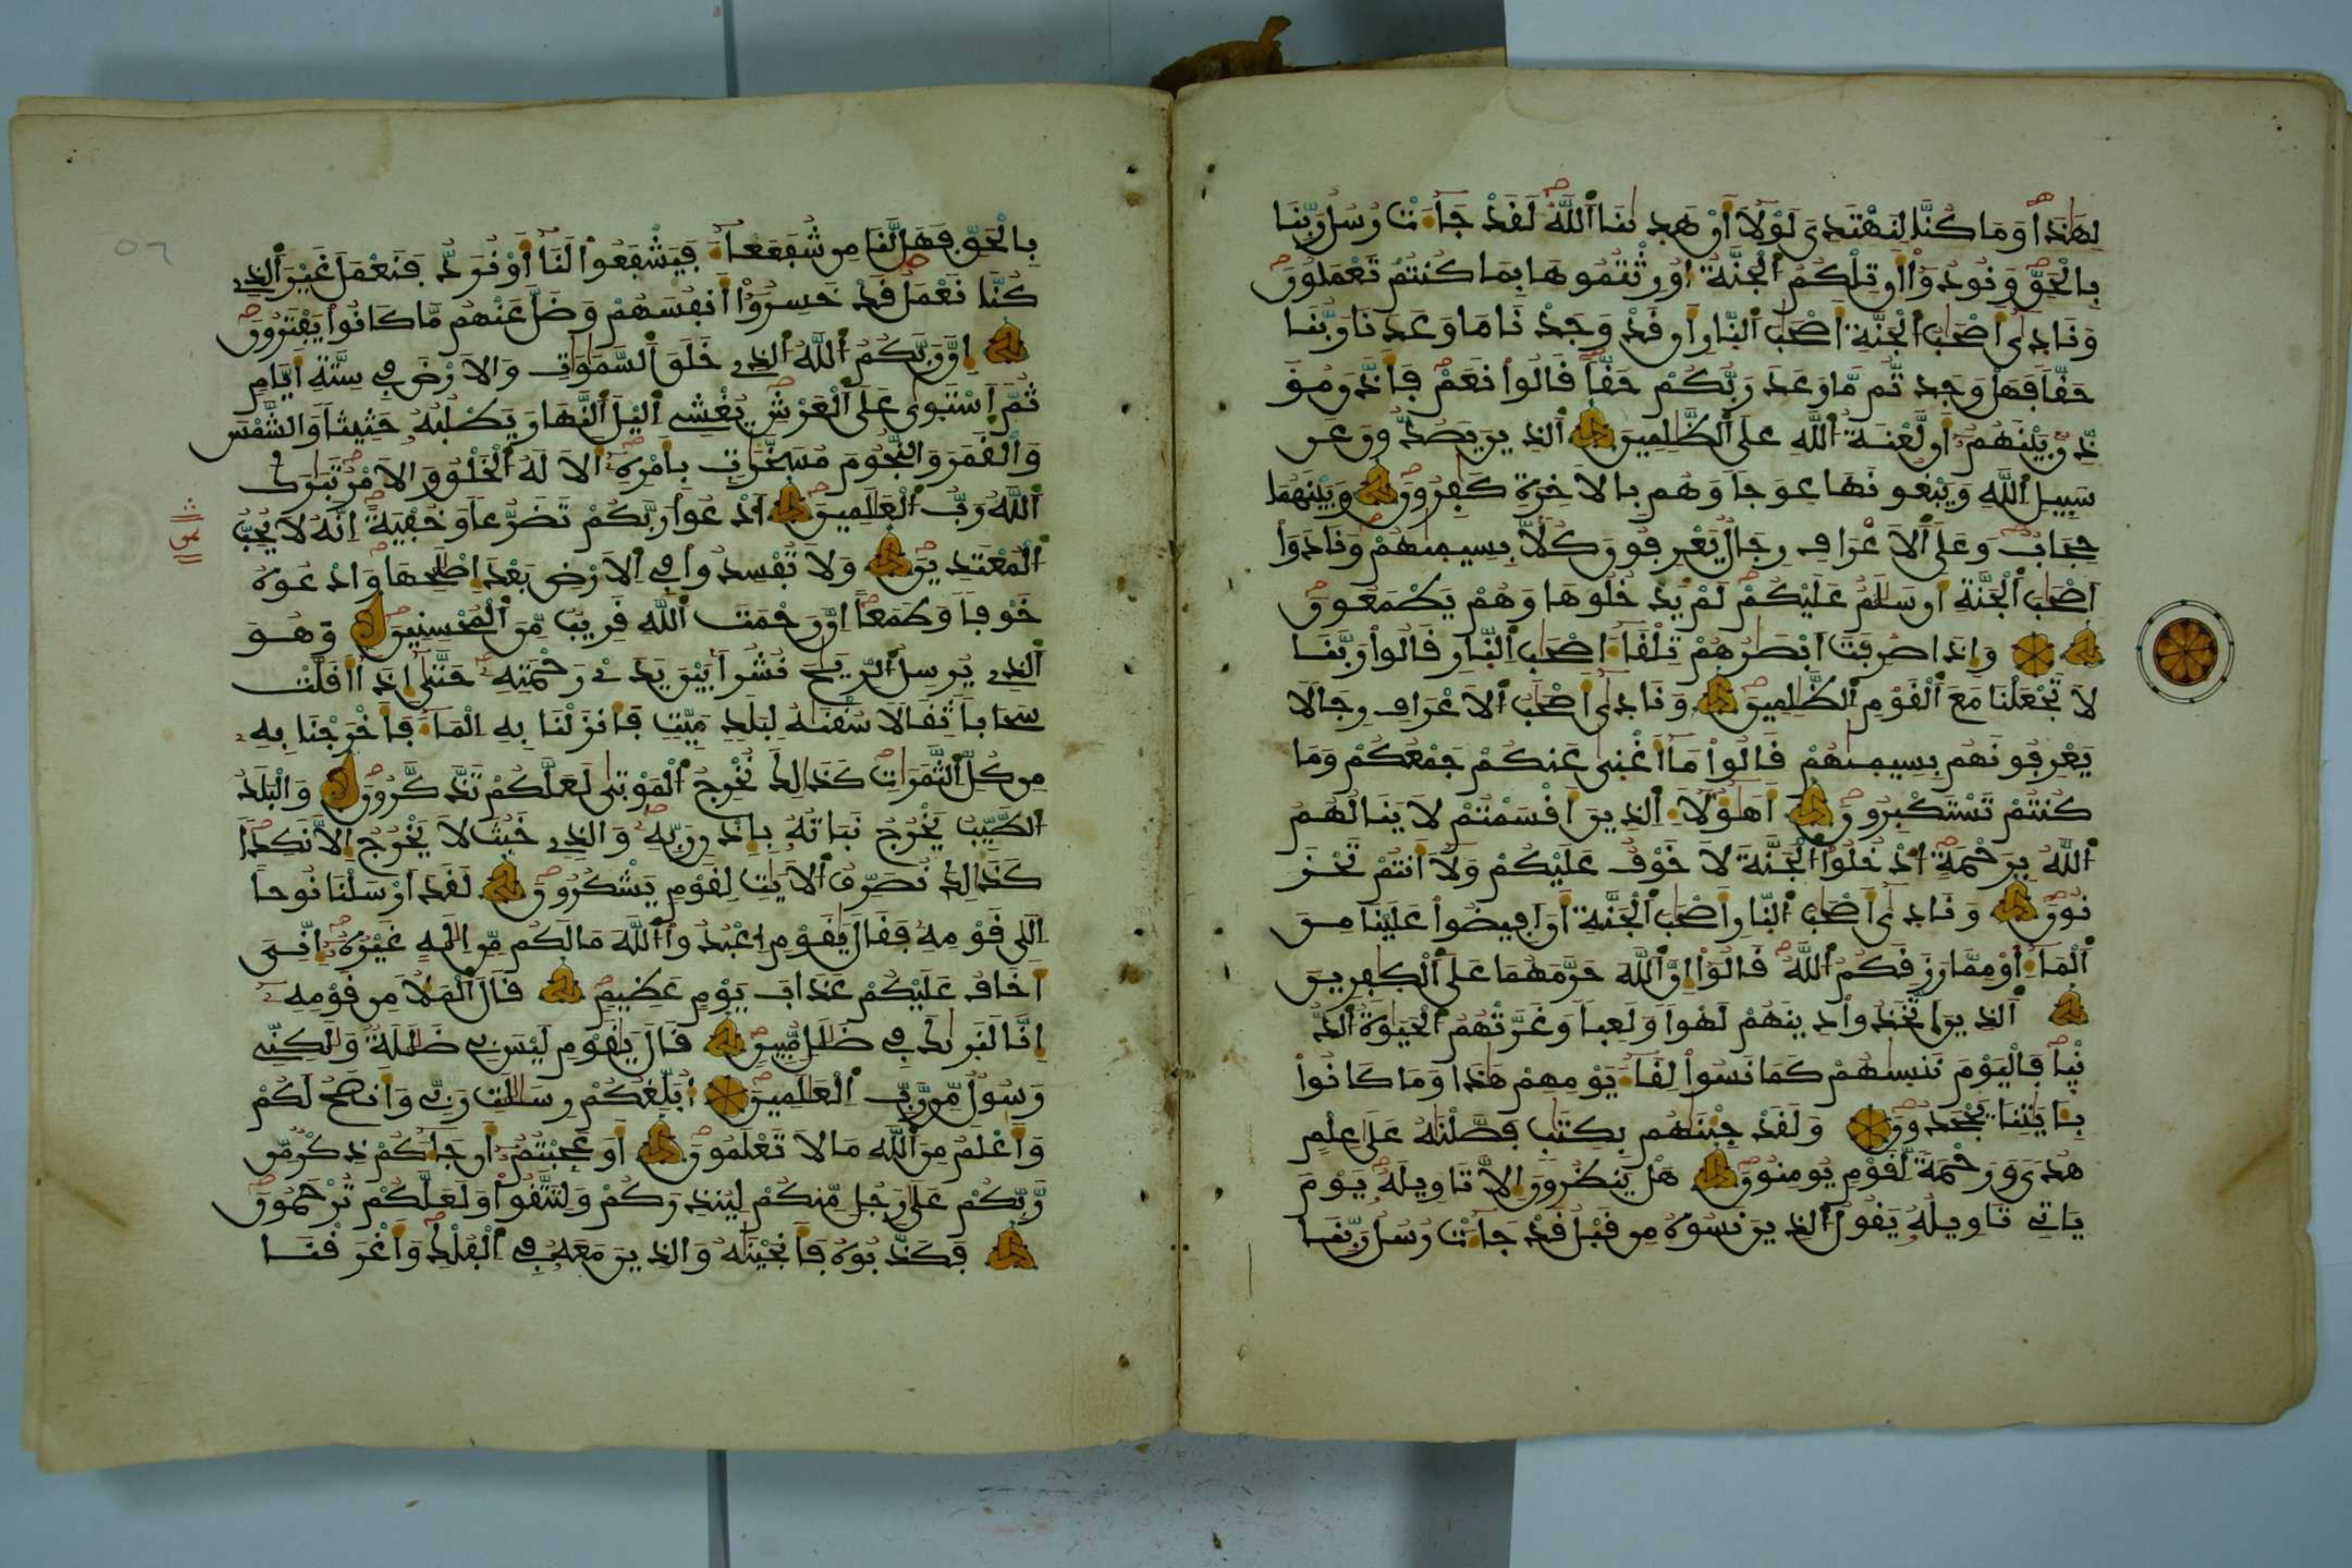 لِهَٰذَا وَمَا كُنَّا لِنَهْتَدِىَ لَوْلَا أَنْ هَدِىٰنَا اَللَّهُ لَقَدْ جَآءَتْ رُسُلُ رَبِّنَا
بِالْحَقِّ وَنُودُوٓاْ أَن تِلْكُمُ اُلْجَنَّةُ أُورِثْتُمُوهَا بِمَا كُنتُمْ تَعْمَلُونَ
وَنَادِىٰٓ أَصْحَٰبُ اُلْجَنَّةِ أَصْحَٰبَ اَلنَّارِ أَن قَدْ وَجَدْنَا مَا وَعَدَنَا رَبُّنَا
حَقّاً فَهَلْ وَجَدتُّم مَّا وَعَدَ رَبُّكُمْ حَقّاً قَالُواْ نَعَمْ فَأَذَّنَ مُؤَ
ذِّنٌ بَيْنَهُمُۥٓ أَن لَّعْنَةُ اُللَّهِ عَلَى اَلظَّٰلِمِينَ اَلذِينَ يَصُدُّونَ عَن
سَبِيلِ اِللَّهِ وَيَبْغُونَهَا عِوَجاً وَهُم بِالَاخِرَةِ كَٰفِرُونَ وَبَيْنَهُمَا
حِجَابٌ وَعَلَى اَلَاعْرَافِ رِجَالٌ يَعْرِفُونَ كُلّاَۢ بِسِيمِىٰهُمْ وَنَادَوَاْ
اَصْحَٰبَ اَلْجَنَّةِ أَن سَلَٰمٌ عَلَيْكُمْ لَمْ يَدْخُلُوهَا وَهُمْ يَطْمَعُونَ
وَإِذَا صُرِفَتَ اَبْصَٰرُهُمْ تِلْقَآءَ اَصْحَٰبِ اِلنَّارِ قَالُواْ رَبَّنَا
لَا تَجْعَلْنَا مَعَ اَلْقَوْمِ اِلظَّٰلِمِينَ وَنَادِىٰٓ أَصْحَٰبُ اُلَاعْرَافِ رِجَالاً
يَعْرِفُونَهُم بِسِيمِىٰهُمْ قَالُواْ مَآ أَغْنِىٰ عَنكُمْ جَمْعُكُمْ وَمَا
كُنتُمْ تَسْتَكْبِرُونَ أَهَٰٓؤُلَآءِ اِلذِينَ أَقْسَمْتُمْ لَا يَنَالُهُمُ
اُللَّهُ بِرَحْمَةٍ اُدْخُلُواْ اُلْجَنَّةَ لَا خَوْفٌ عَلَيْكُمْ وَلَآ أَنتُمْ تَحْزَ
نُونَ وَنَادِىٰٓ أَصْحَٰبُ اُلنَّارِ أَصْحَٰبَ اَلْجَنَّةِ أَنَ اَفِيضُواْ عَلَيْنَا مِنَ
اَلْمَآءِ اَوْ مِمَّا رَزَقَكُمُ اُللَّهُ قَالُوٓاْ إِنَّ اَللَّهَ حَرَّمَهُمَا عَلَى اَلْكٰفِرِينَ
اَلذِينَ اَتَّخَذُواْ دِينَهُمْ لَهْواً وَلَعِباً وَغَرَّتْهُمُ اُلْحَيَوٰةُ اُلدُّ
نْيَا فَالْيَوْمَ نَنسِىٰهُمْ كَمَا نَسُواْ لِقَآءَ يَوْمِهِمْ هَٰذَا وَمَا كَانُواْ
بِـَٔايَٰتِنَا يَجْحَدُونَ وَلَقَدْ جِئْنَٰهُم بِكِتَٰبٍ فَصَّلْنَٰهُ عَلَىٰ عِلْمٍ
هُدىً وَرَحْمَةً لِّقَوْمٍ يُومِنُونَ هَلْ يَنظُرُونَ إِلَّا تَاوِيلَهُۥ يَوْمَ
يَاتِے تَاوِيلُهُۥ يَقُولُ اُلذِينَ نَسُوهُ مِن قَبْلُ قَدْ جَآءَتْ رُسُلُ رَبِّنَا
بِالْحَقِّ فَهَل لَّنَا مِن شُفَعَآءَ فَيَشْفَعُواْ لَنَآ أَوْ نُرَدُّ فَنَعْمَلَ غَيْرَ اَلذِے
كُنَّا نَعْمَلُ قَدْ خَسِرُوٓاْ أَنفُسَهُمْ وَضَلَّ عَنْهُم مَّا كَانُواْ يَفْتَرُونَ
إِنَّ رَبَّكُمُ اُللَّهُ اُلذِے خَلَقَ اَلسَّمَٰوَٰتِ وَالَارْضَ فِے سِتَّةِ أَيَّامٍ
ثُمَّ اَسْتَوِىٰ عَلَى اَلْعَرْشِ يُغْشِے اِليْلَ اَلنَّهَارَ يَطْلُبُهُۥ حَثِيثاً وَالشَّمْسَ
وَالْقَمَرَ وَالنُّجُومَ مُسَخَّرَٰتِۭ بِأَمْرِهِۦٓ أَلَا لَهُ اُلْخَلْقُ وَالَامْرُ تَبَٰرَكَ
اَللَّهُ رَبُّ اُلْعَٰلَمِينَ اَدْعُواْ رَبَّكُمْ تَضَرُّعاً وَخُفْيَةً اِنَّهُۥ لَا يُحِبُّ
ثمن
اُلْمُعْتَدِينَ وَلَا تُفْسِدُواْ فِے اِلَارْضِ بَعْدَ إِصْلَٰحِهَا وَادْعُوهُ
خَوْفاً وَطَمَعاً اِنَّ رَحْمَتَ اَللَّهِ قَرِيبٌ مِّنَ اَلْمُحْسِنِينَ وَهُوَ
اَلذِے يُرْسِلُ اُلرِّيَٰحَ نُشُراَۢ بَيْنَ يَدَےْ رَحْمَتِهِۦ حَتَّىٰٓ إِذَآ أَقَلَّتْ
سَحَاباً ثِقَالاً سُقْنَٰهُ لِبَلَدٍ مَّيِّتٍ فَأَنزَلْنَا بِهِ اِلْمَآءَ فَأَخْرَجْنَا بِهِۦ
مِن كُلِّ اِلثَّمَرَٰتِ كَذَٰلِكَ نُخْرِجُ اُلْمَوْتِىٰ لَعَلَّكُمْ تَذَّكَّرُونَ وَالْبَلَدُ
اُلطَّيِّبُ يَخْرُجُ نَبَاتُهُۥ بِإِذْنِ رَبِّهِۦ وَالذِے خَبُثَ لَا يَخْرُجُ إِلَّا نَكِداً
كَذَٰلِكَ نُصَرِّفُ اُلَايَٰتِ لِقَوْمٍ يَشْكُرُونَ لَقَدَ اَرْسَلْنَا نُوحاً
اِلَىٰ قَوْمِهِۦ فَقَالَ يَٰقَوْمِ اِعْبُدُواْ اُللَّهَ مَا لَكُم مِّنِ اِلَٰهٍ غَيْرُهُۥٓ إِنِّىَ
أَخَافُ عَلَيْكُمْ عَذَابَ يَوْمٍ عَظِيمٍ قَالَ اَلْمَلَأُ مِن قَوْمِهِۦٓ
إِنَّا لَنَرىٰكَ فِے ضَلَٰلٍ مُّبِينٍ قَالَ يَٰقَوْمِ لَيْسَ بِے ضَلَٰلَةٌ وَلَٰكِنِّے
رَسُولٌ مِّن رَّبِّ اِلْعَٰلَمِينَ أُبَلِّغُكُمْ رِسَٰلَٰتِ رَبِّے وَأَنصَحُ لَكُمْ
وَأَعْلَمُ مِنَ اَللَّهِ مَا لَا تَعْلَمُونَ أَوَ عَجِبْتُمُۥٓ أَن جَآءَكُمْ ذِكْرٌ مِّن
رَّبِّكُمْ عَلَىٰ رَجُلٍ مِّنكُمْ لِيُنذِرَكُمْ وَلِتَتَّقُواْ وَلَعَلَّكُمْ تُرْحَمُونَ
فَكَذَّبُوهُ فَأَنجَيْنَٰهُ وَالذِينَ مَعَهُۥ فِے اِلْفُلْكِ وَأَغْرَقْنَا